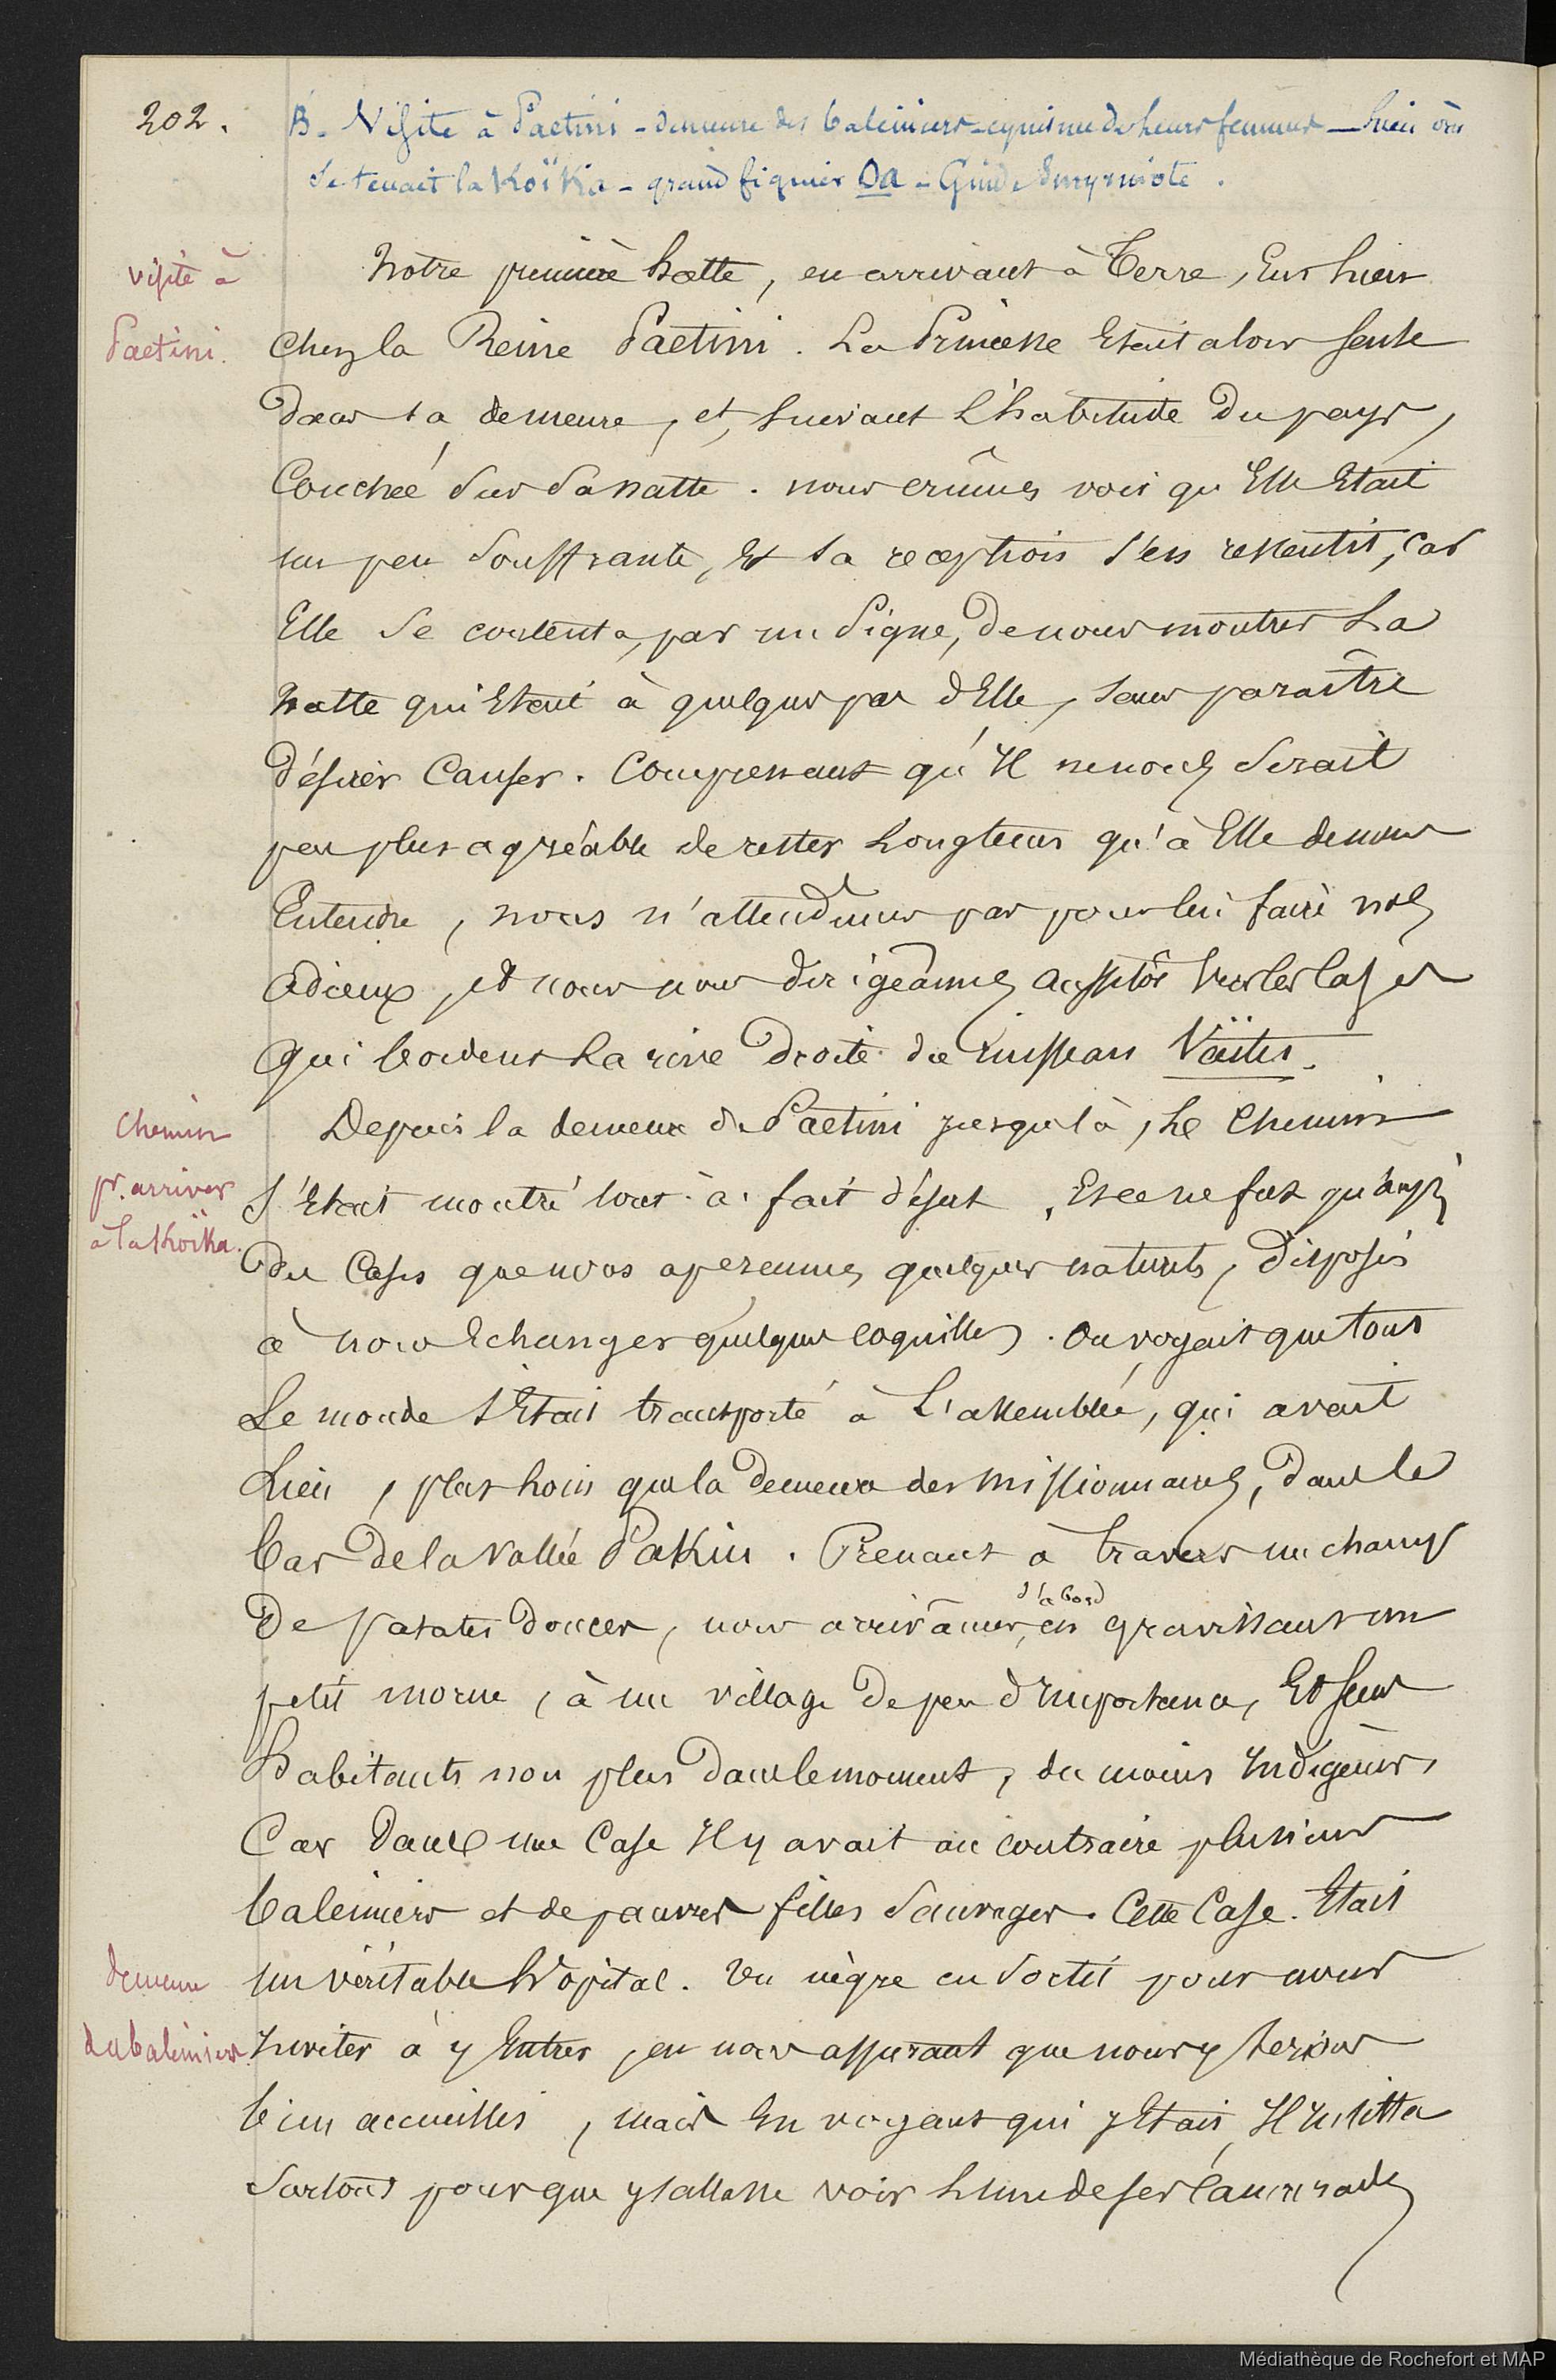 202.
B. Visite à Paetini - demeure des baleiniers - cynisme de leurs femmes - Lieu où
se tenait la Koïka - grand figuier Oa - Guide Emymiote.
visite à
Paetini.
Notre première halte, en arrivant à Terre, Eut lieu
chez la Reine Paetini. La Princesse Etait alors seule
dans sa demeure, et, suivant L'habitude du pays,
Couchée sur sa natte. nous crûmes voir qu'Elle Etait
un peu souffrante, Et sa reception s'en ressentit, car
Elle se contenta, par un signe, de nous montrer La
natte qui Etait à quelques pas d'Elle, sans paraître
désirer Causer. Comprenant qu'Il ne nous serait
pas plus agréable de rester Longtems qu'à Elle de nous
Entendre, nous n'attendimes pas pour lui faire nos
adieux, et nous nous dirigeâmes aussitôt vers les cases
qui bordent La rive droite du ruisseau Vaïtu.
chemin
pr. arriver
à la Koïka.
Depuis la demeure de Paetini jusque là, Le Chemin
s'Etait montré tout à fait désert, Et ce ne fut qu'auprès
des Cases que nous aperçumes quelques naturels, disposés
à nous Echanger quelques coquilles. On voyait que tout
Le monde s'Etait transporté à L'assemblée, qui avait
Lieu, plus loin que la demeure des missionnaires, dans le
bas de la vallée Pakiu. Prenant à travers un champ
De patates douces, nous arrivâmes, d'abord en gravissant un
petit morne, à un village de peu d'Importance, Et sans
habitants non plus dans le moment, du moins Indigènes,
Car dans une Case Il y avait au contraire plusieurs
baleiniers et de pauvres filles sauvages. Cette Case Etait
demeure
des baleiniers
un véritable hôpital. Un nègre en sortit pour nous
Inviter à y Entrer, en nous assurant que nous y serions
bien accueillis, mais En voyant qui j'Etais, Il Insista
surtout pour que j'allasse voir L'un de ses camarades
Médiathèque de Rochefort et MAP